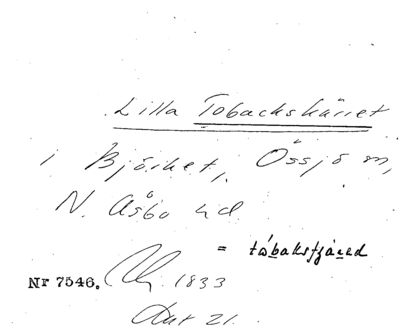 Lilla Tobackskärret
i Björket, Össjö sn,
N. Åsbo hd
= tábakstjäred
Nr 7546. 1833
Akt 21.